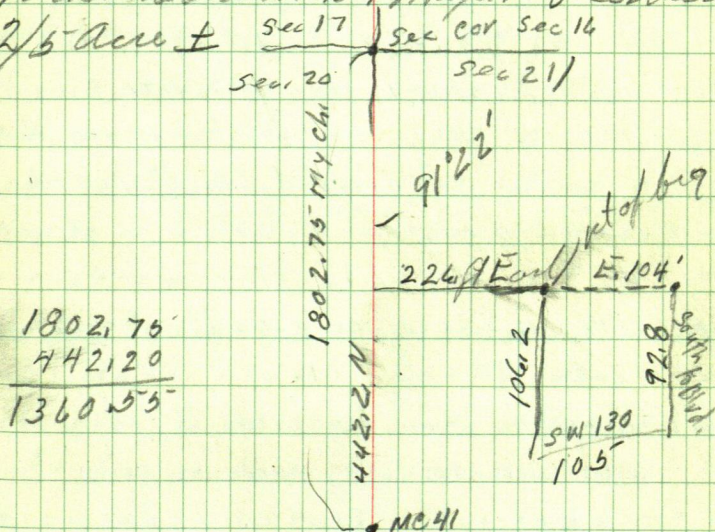 2/5 Acre ±
sec 17 sec cor sec 16
sec. 20 sec 21
1802.75 My Ch.
91°22'
pt of beg
226 ft East E. 104'
1802.75
442.20
1360.55
442.2 N
106.2
92.8
south to Blvd.
SW 130
105
MC 41